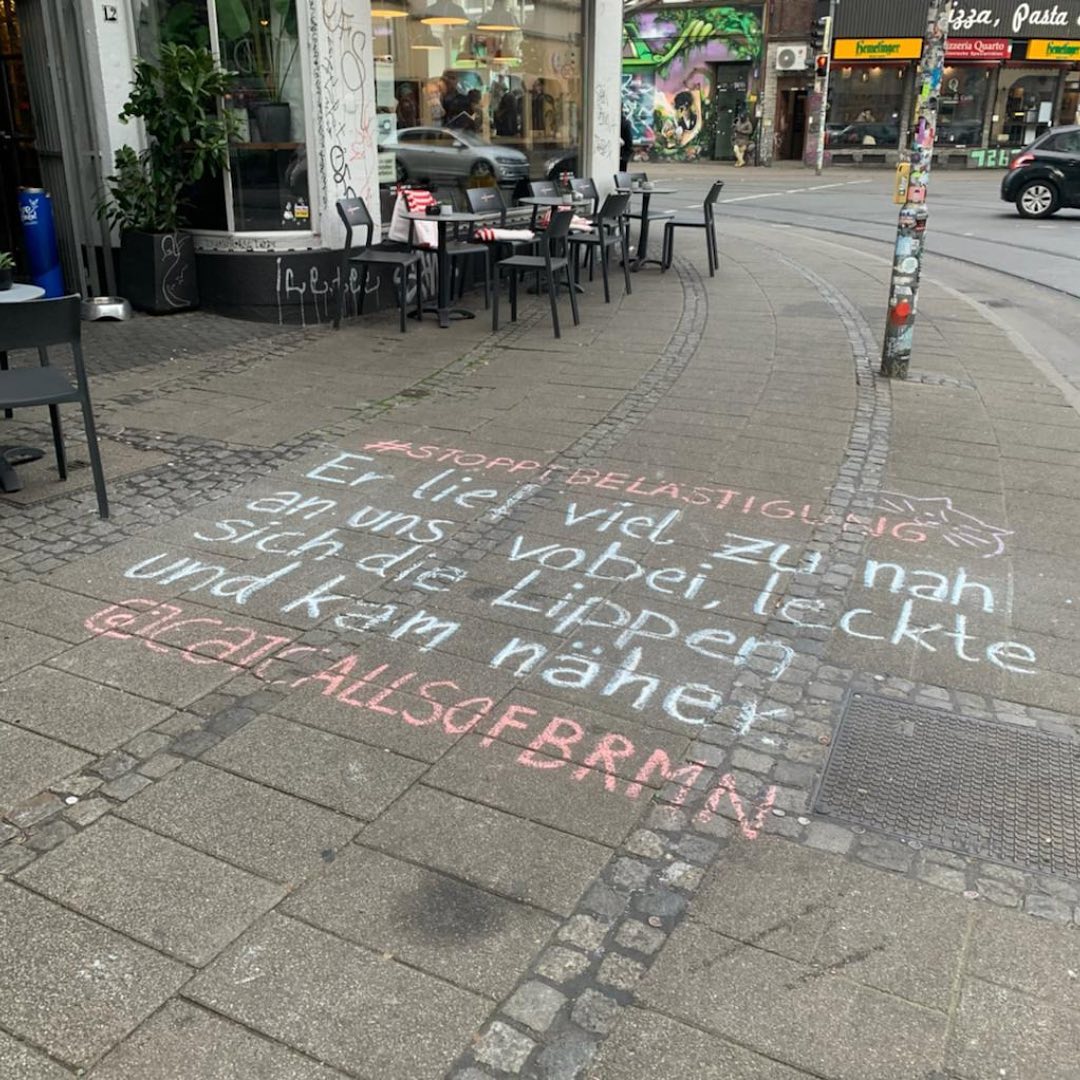 12
izza, Pasta
Hemelinger
Pizzeria Quarto
Hemelinger
726
#STOPPTBELÄSTIGUNG
Er lief viel zu nah
an uns vobei, leckte
sich die Lippen
und kam näher
@CATCALLSOFBRMN